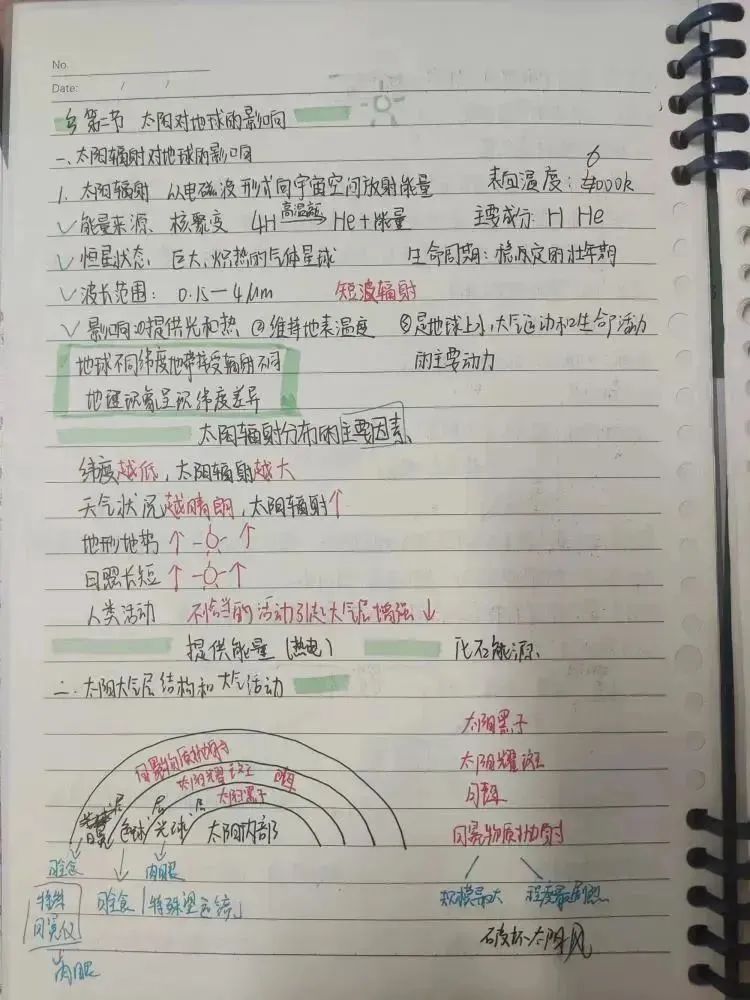 No.
Date: / /
第二节 太阳对地球的影响
一、太阳辐射对地球的影响
1. 太阳辐射 以电磁波形式向宇宙空间放射能量 表面温度：6000k
✓能量来源、核聚变 4H 高温高压→ He+能量 主要成分：H He
✓恒星状态、巨大、炽热的气体星球 生命周期：稳定的壮年期
✓波长范围： 0.15—4μm 短波辐射
✓影响①提供光和热 ②维持地表温度 ③是地球上水、大气运动和生命活动
的主要动力
地球不同纬度地带接受辐射不同
地理现象呈现纬度差异
太阳辐射分布的主要因素、
纬度越低，太阳辐射越大
天气状况越晴朗，太阳辐射↑
地形地势 ↑ ↑
日照长短 ↑ ↑
人类活动 不恰当的活动引起大气层增强↓
提供能量（热电） 化石能源、
二、太阳大气层结构和大气活动
太阳黑子
太阳耀斑
日珥
日冕物质抛射
规模最大 程度最剧烈
破坏太阳风
日冕物质抛射
太阳耀斑 日珥
太阳黑子
日冕层 色球层 光球层 太阳内部
日全食 肉眼
特殊
日冕仪
日全食「特殊望远镜」
肉眼